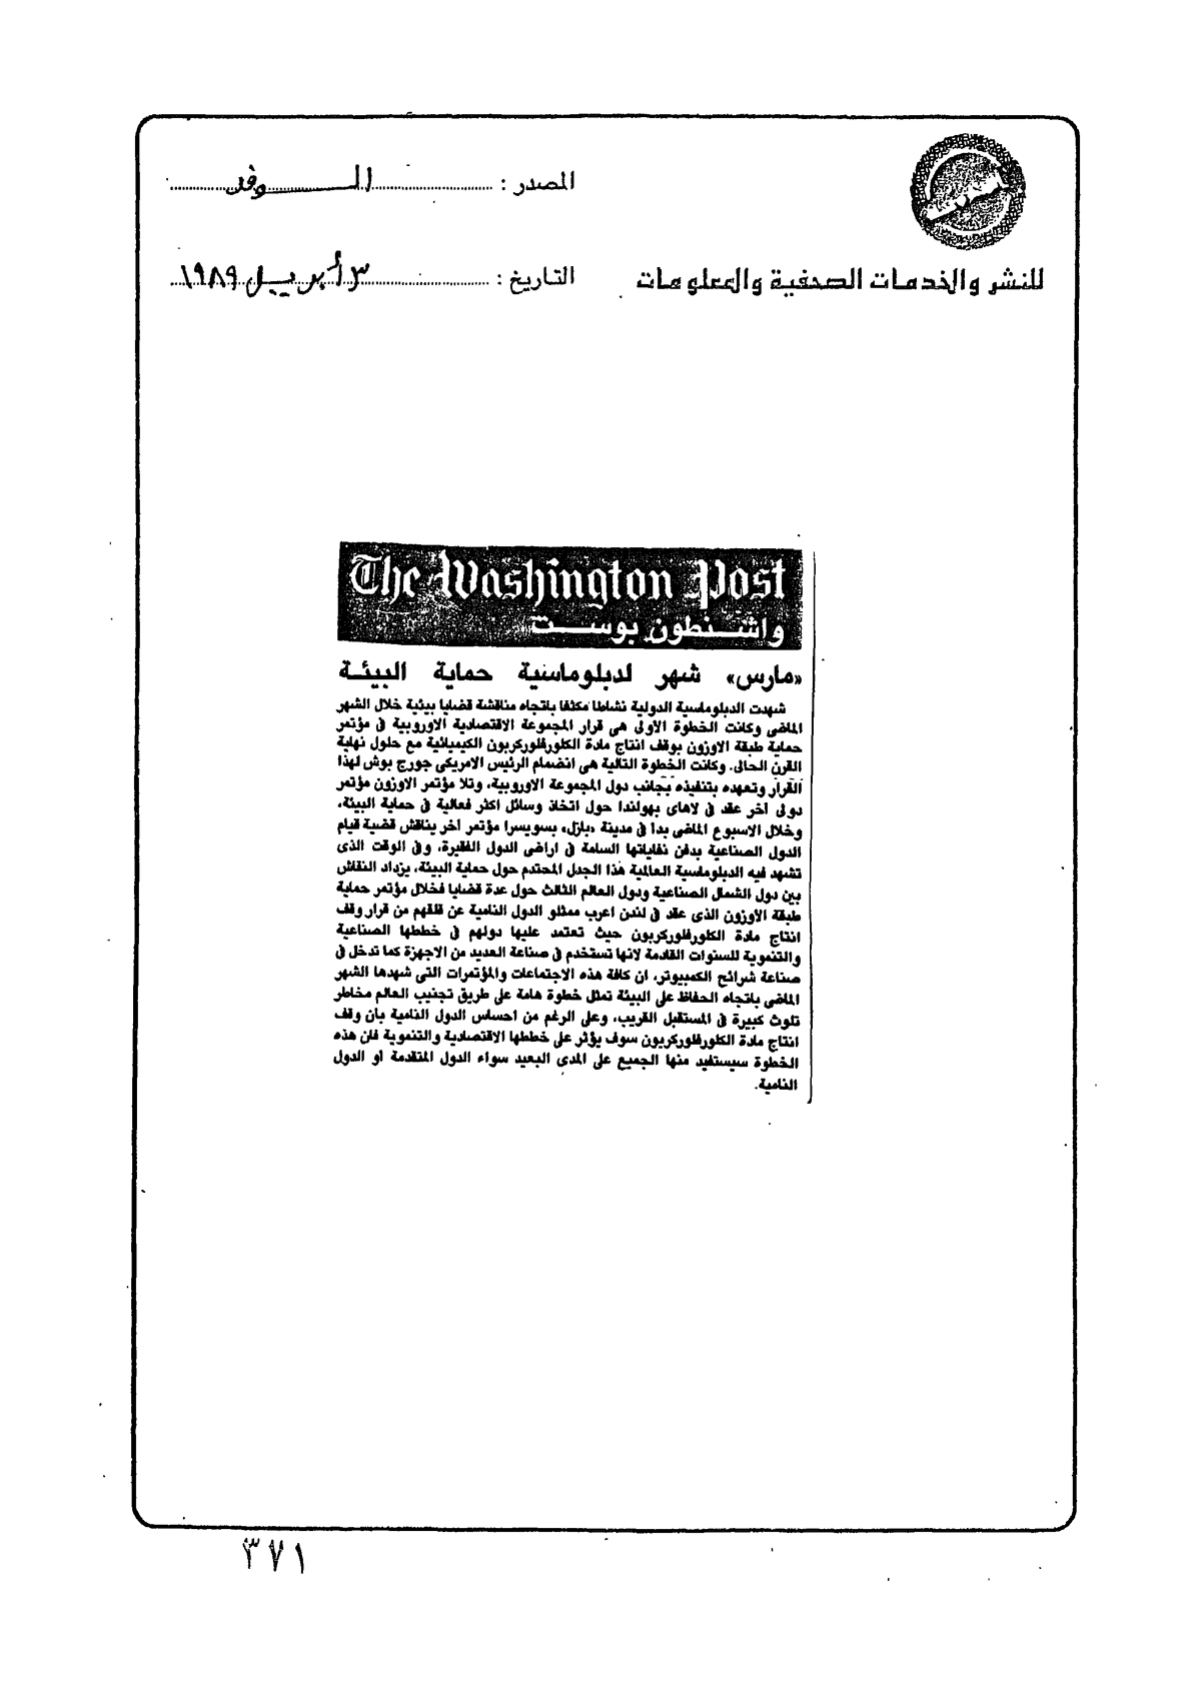 المصدر : الـــوفد
للنشر والخدمات الصحفية والمعلومات
التاريخ : ٣ أبريل ١٩٨٩
The Washington Post
واشنطون بوست
«مارس» شهر لدبلوماسية حماية البيئة
شهدت الدبلوماسية الدولية نشاطا مكثفا باتجاه مناقشة قضايا بيئية خلال الشهر
الماضى وكانت الخطوة الاولى هى قرار المجموعة الاقتصادية الاوروبية فى مؤتمر
حماية طبقة الاوزون بوقف انتاج مادة الكلورفلوركربون الكيميائية مع حلول نهاية
القرن الحالى. وكانت الخطوة التالية هى انضمام الرئيس الامريكى جورج بوش لهذا
القرار وتعهده بتنفيذه بجانب دول المجموعة الاوروبية، وتلا مؤتمر الاوزون مؤتمر
دولى اخر عقد فى لاهاى بهولندا حول اتخاذ وسائل اكثر فعالية فى حماية البيئة،
وخلال الاسبوع الماضى بدا فى مدينة «بازل» بسويسرا مؤتمر اخر يناقش قضية قيام
الدول الصناعية بدفن نفاياتها السامة فى اراضى الدول الفقيرة، وفى الوقت الذى
تشهد فيه الدبلوماسية العالمية هذا الجدل المحتدم حول حماية البيئة، يزداد النقاش
بين دول الشمال الصناعية ودول العالم الثالث حول عدة قضايا فخلال مؤتمر حماية
طبقة الاوزون الذى عقد فى لندن اعرب ممثلو الدول النامية عن قلقهم من قرار وقف
انتاج مادة الكلورفلوركربون حيث تعتمد عليها دولهم فى خططها الصناعية
والتنموية للسنوات القادمة لانها تستخدم فى صناعة العديد من الاجهزة كما تدخل فى
صناعة شرائح الكمبيوتر، ان كافة هذه الاجتماعات والمؤتمرات التى شهدها الشهر
الماضى باتجاه الحفاظ على البيئة تمثل خطوة هامة على طريق تجنيب العالم مخاطر
تلوث كبيرة فى المستقبل القريب، وعلى الرغم من احساس الدول النامية بان وقف
انتاج مادة الكلورفلوركربون سوف يؤثر على خططها الاقتصادية والتنموية فان هذه
الخطوة سيستفيد منها الجميع على المدى البعيد سواء الدول المتقدمة او الدول
النامية.
٣٧١